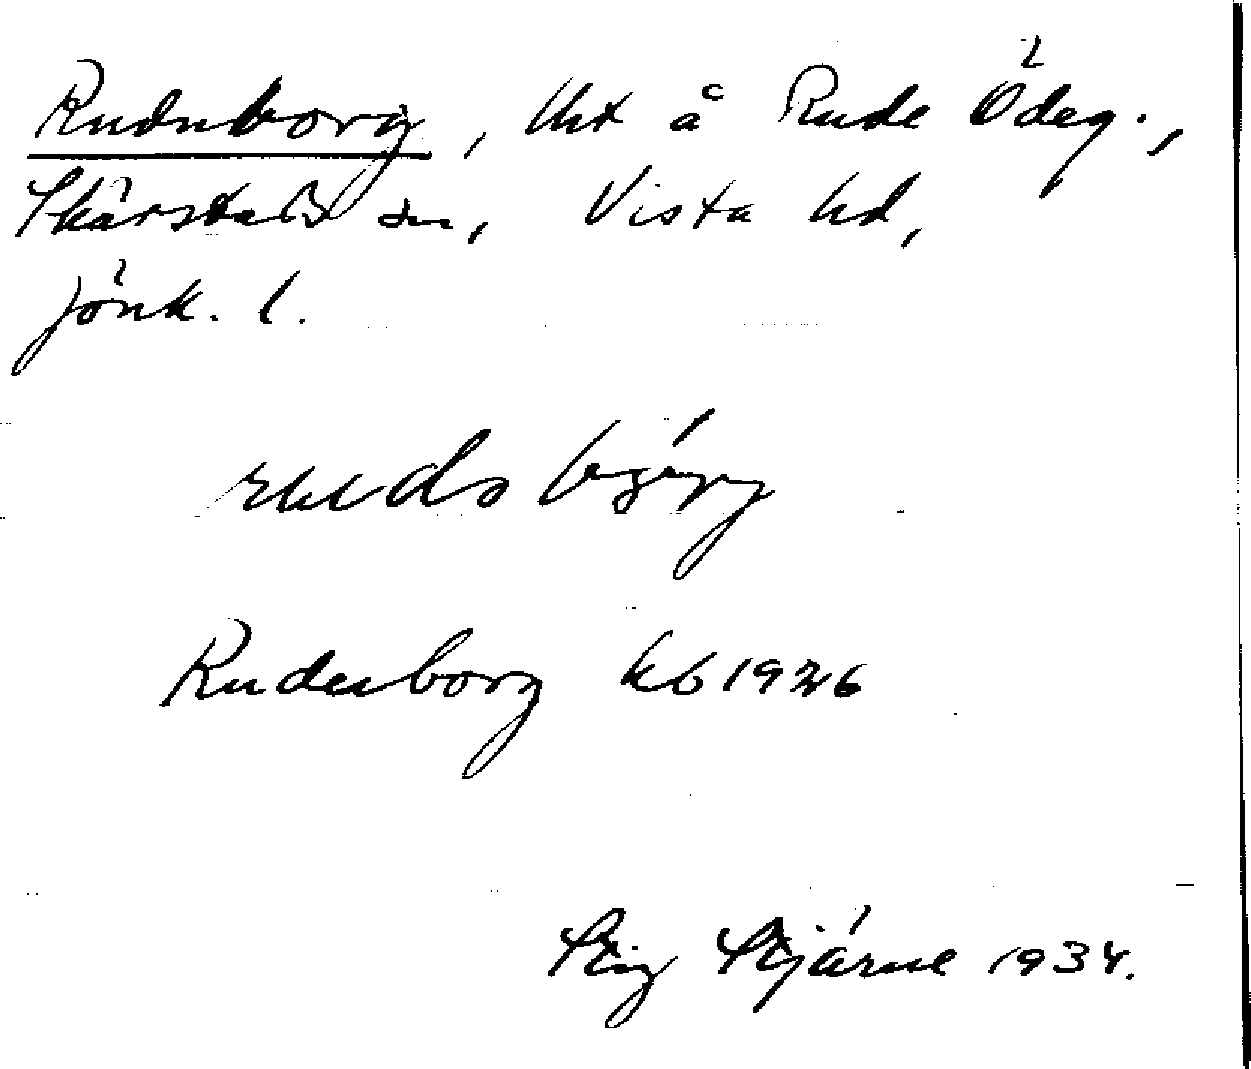 Rudnborg, lht å Rude Ödeg.,
Skärstads sn, Vista hd,
Jönk. l.
ruds bərg
Rudenborg kb 1926
Stig Stjärne 1934.